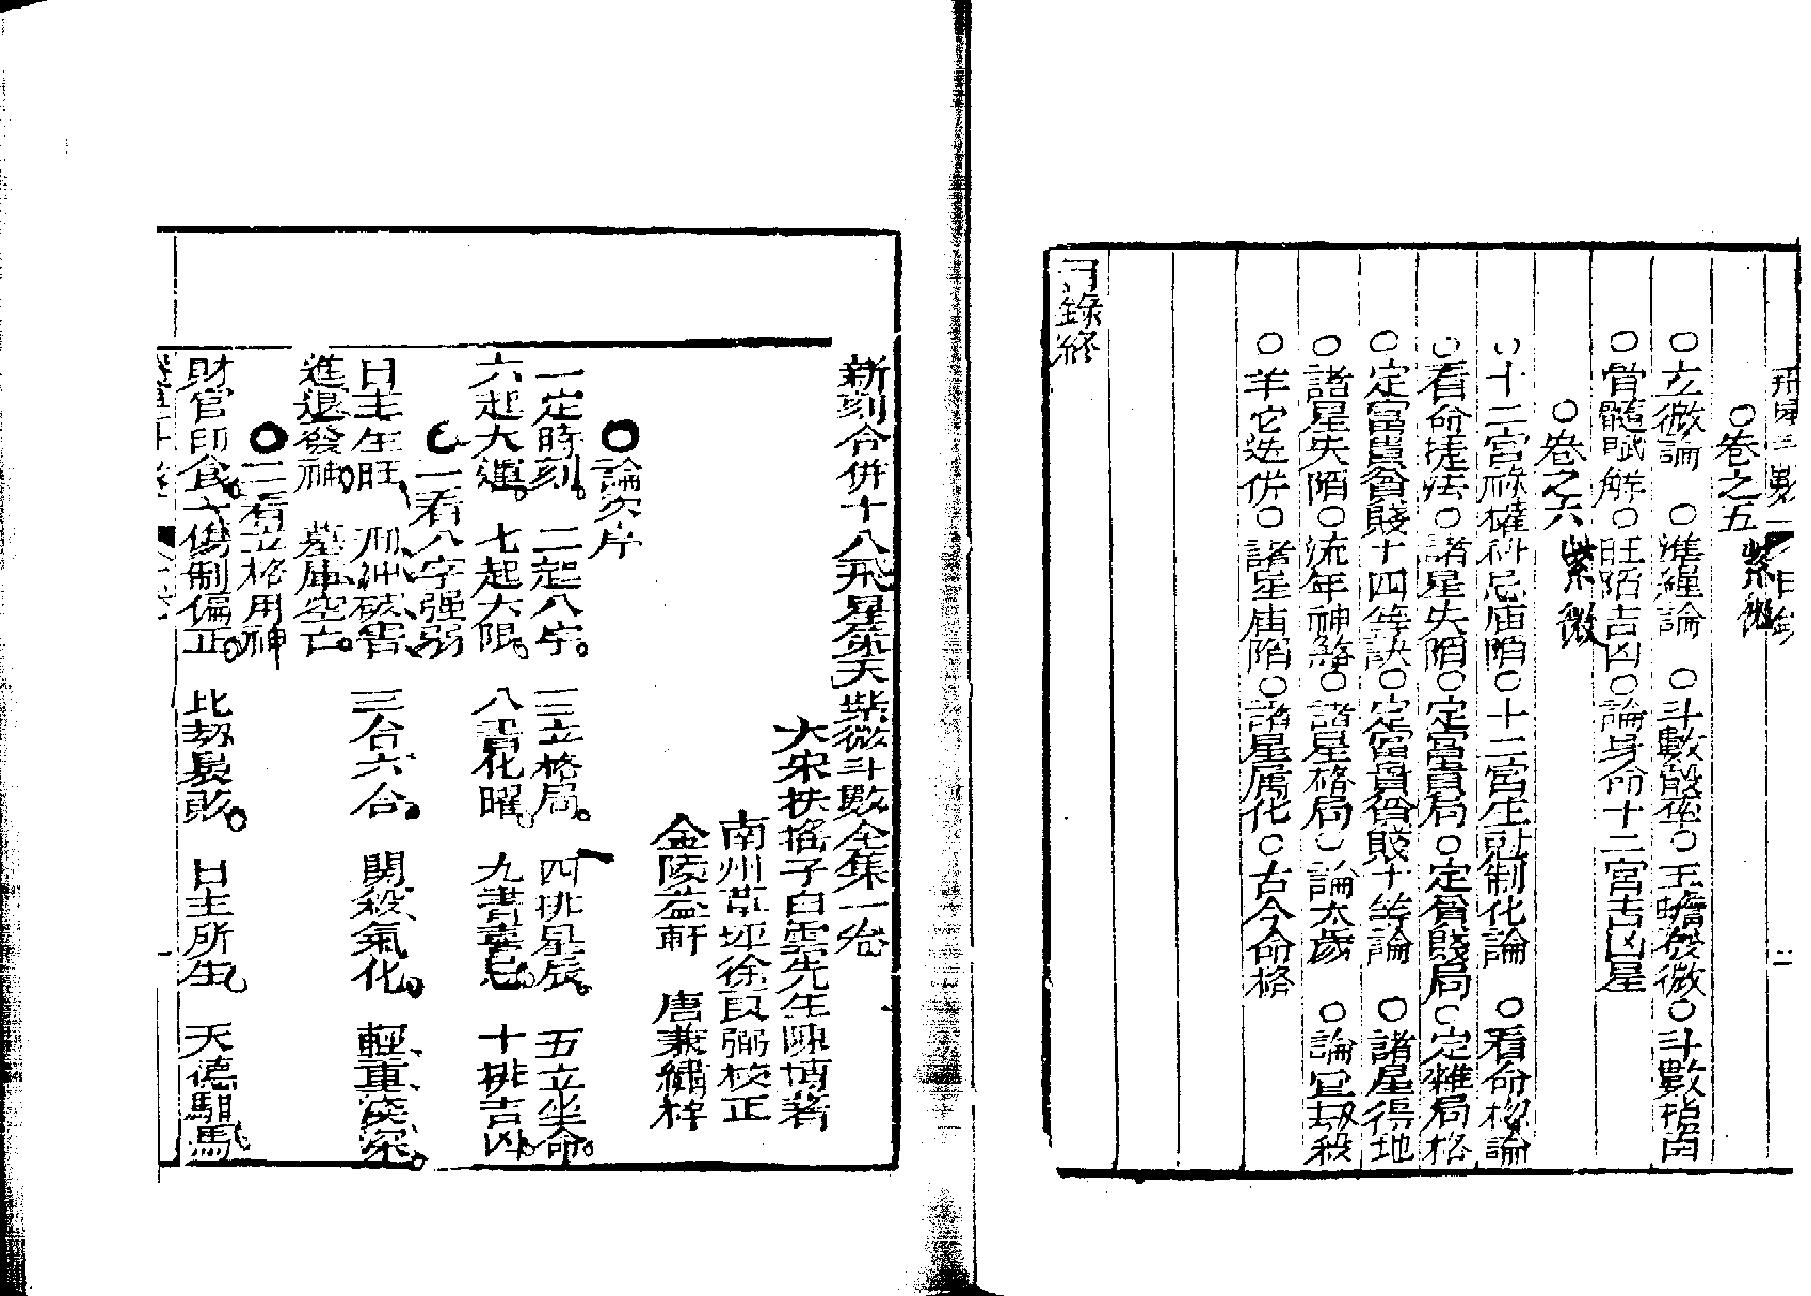 ○卷之五 紫微
○玄微論 ○準繩論 ○斗數骰率○玉蟾發微○斗數指南
○骨髓賦解○旺陷吉凶○論身命十二宮吉凶星
○卷之六 紫微
○十二宮祿權科忌庙陷○十二宮生剋制化論 ○看命捴論
○看命捷法○諸星失陷○定富貴局○定貧賤局○定雜局格
○定富貴貧賤十四等訣○定富貴貧賤十等論 ○諸星得地
○諸星失陷○流年神煞○諸星格局○論太歲 ○論冝刼殺
○羊它迭併○諸星庙陷○諸星屬化○古今命格
目錄終
新刻合併十八飛星策天紫微斗數全集一卷
大宋扶搖子白雲先生陳摶著
南州 徐良弼校正
金陵益軒 唐兼繡梓
○論次序
一定時刻。二起八字。三立格局。四排星辰。五立坐命。
六起大運。七起大限。八 花曜。九書 忌。十排吉凶。
○一看八字强弱
日主生旺 刑冲破害 三合六合。 閑殺氣化。 輕重淺深。
進退發神。墓庫空亡。
○二看立格用神
財官印食。 傷制偏正。比刼 敗。日主所生。天德馹馬